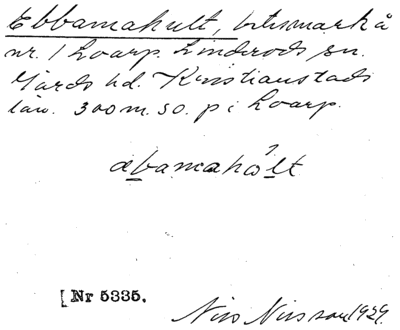 Ebbamahult, betesmark å
nr. 1 Loarp. Linderöds sn.
Gärds hd. Kristianstads
län. 300 m. so. på Loarp.
æbamahὼlt
[Nr 5335.
Nils Nilsson 1929.